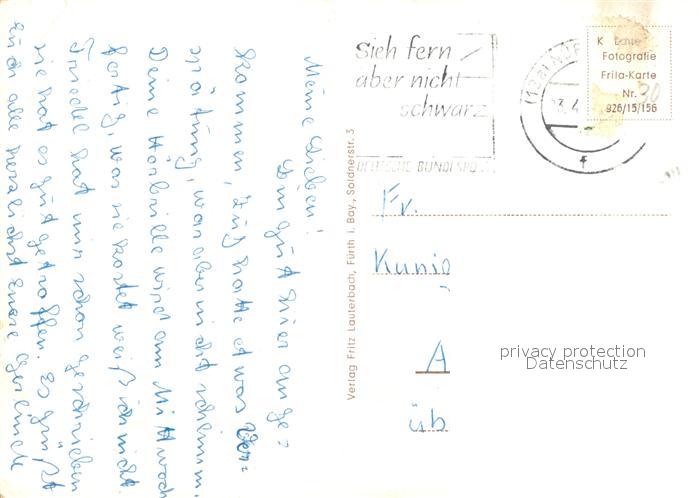 Meine Lieben!
Bin gut hier ange=
kommen, Zug hatte etwas Ver=
spätung, war aber nicht schlimm.
Deine Hörbrille wird am Mittwoch
fertig, was sie kostet weiß ich nicht.
Friedel hat mir schon geschrieben
sie hat es gut getroffen. Es grüßt
Euch alle herzlichst Eure
Sieh fern
aber nicht
schwarz
DEUTSCHE BUNDESPOST
K Echte
Fotografie
Frila-Karte
Nr. 30
926/15/156
Verlag Fritz Lauterbach, Fürth i. Bay., Soldnerstr. 3
Fr.
Kunig
A
üb
privacy protection
Datenschutz